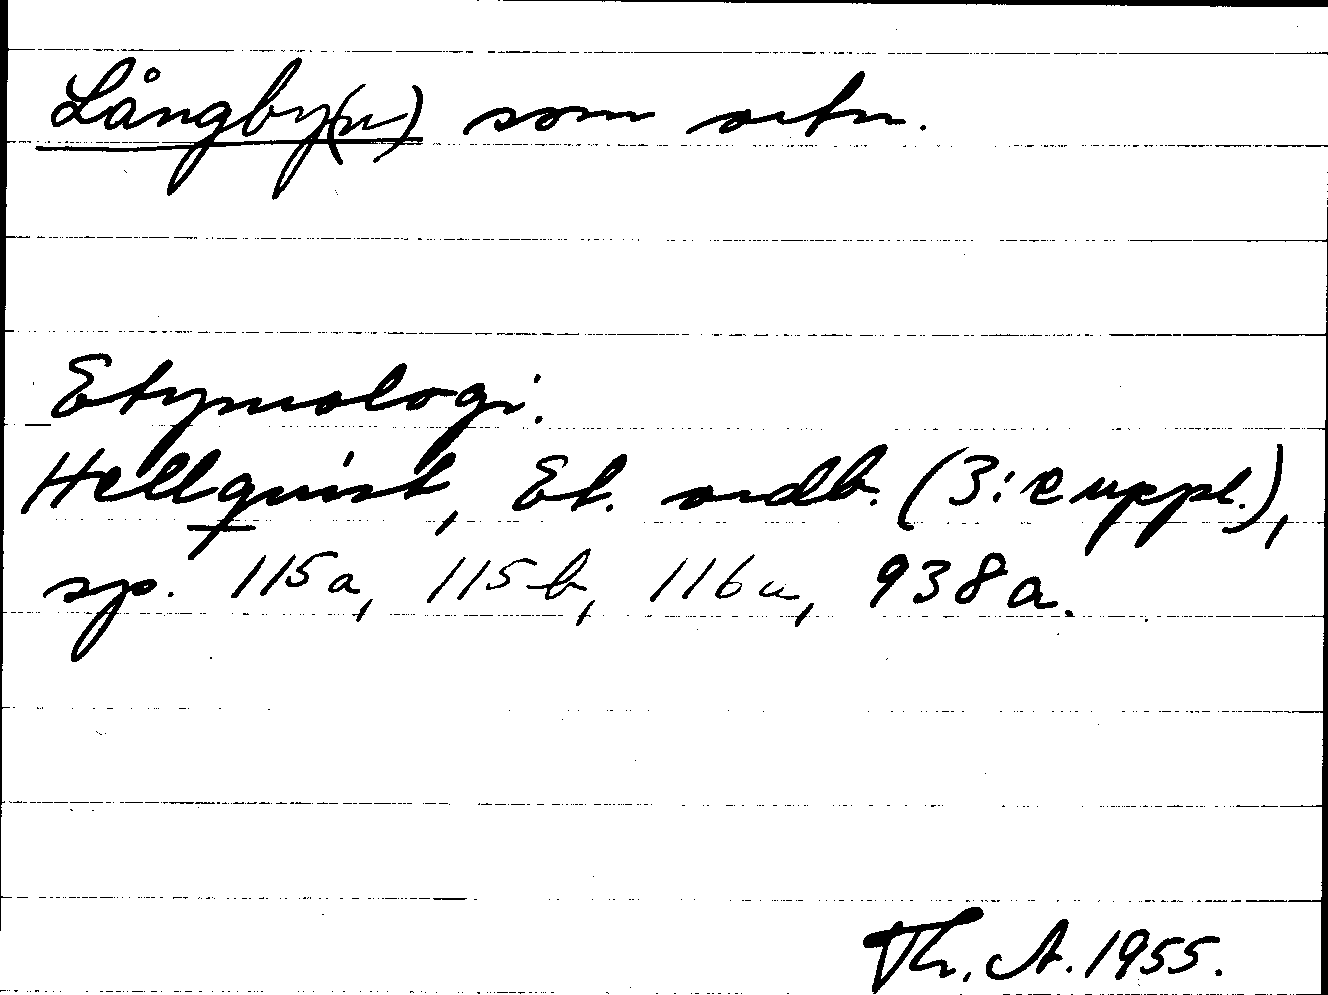 Långby(n) som ortn.
Etymologi.
Hellquist, Et. ordb. (3:e uppl.),
sp. 115a, 115b, 116a, 938a.
Th. A. 1955.